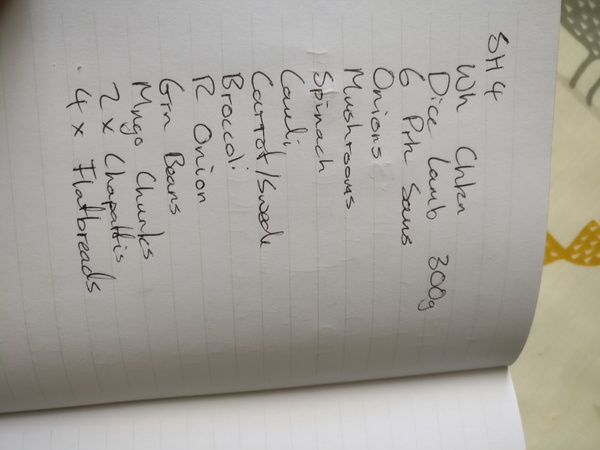 SH4
Wh Chkn
Dice Lamb 300g
6 Prk Saus
Onions
Mushrooms
Spinach
Cauli
Carrot/Swede
Broccoli
R Onion
Grn Beans
Mngo Chunks
2 x Chapattis
4 x Flatbreads